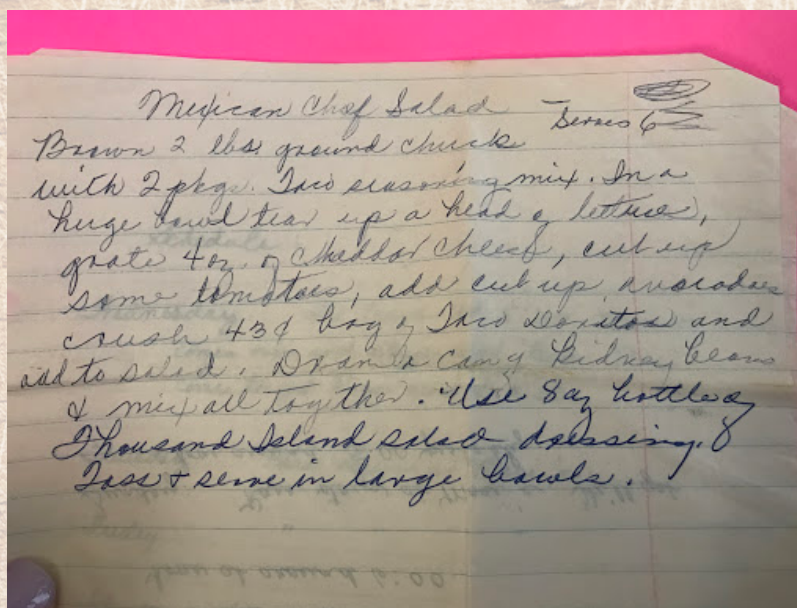 Mexican Chef Salad
Serves 6
Brown 2 lbs. ground chuck
with 2 pkgs. Taco seasoning mix. In a
huge bowl tear up a head of lettuce,
grate 4 oz of Cheddar cheese, cut up
some tomatoes, add cut up avocadoes
crush 43¢ bag of Taco Doritos and
add to salad. Drain a can of Kidney beans
& mix all together. Use 8 oz bottle of
Thousand Island salad dressing.
Toss & serve in large bowls.